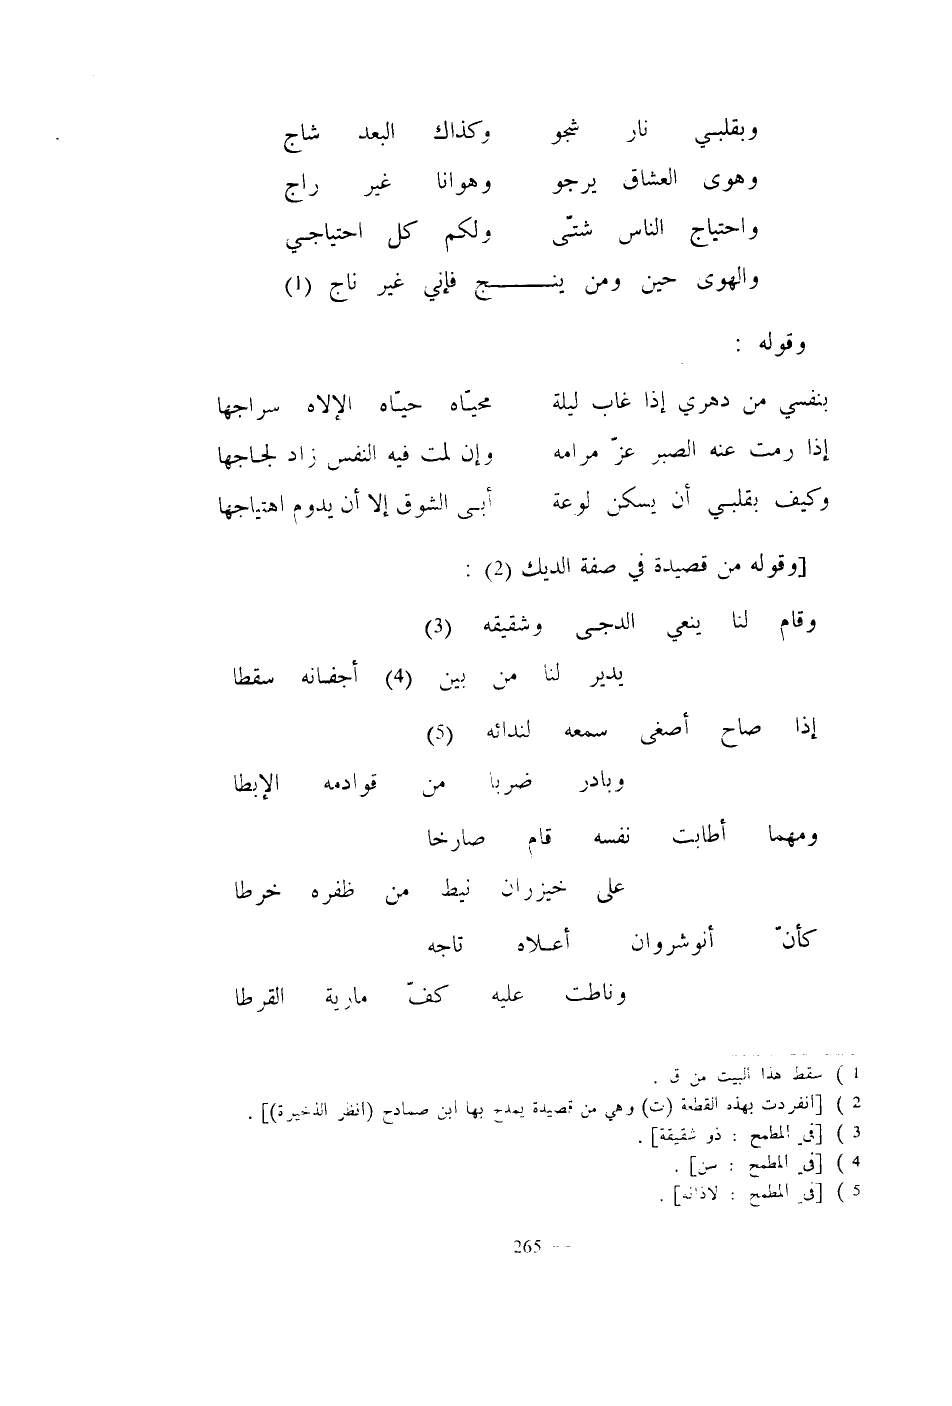 وبقلبي نار شجو وكذاك البعد شاج
وهوى العشاق يرجو وهوانا غير راج
واحتياج الناس شتّى ولكم كل احتياجي
والهوى حين ومن ينـــــج فإني غير ناج (1)
وقوله :
بنفسي من دهري إذا غاب ليلة محيّاه حيّاه الإلاه سراجها
إذا رمت عنه الصبر عزّ مرامه وإن لمت فيه النفس زاد لجاجها
وكيف بقلبي أن يسكن لوعة أبى الشوق إلا أن يدوم اهتياجها
[وقوله من قصيدة في صفة الديك (2) :
وقام لنا ينعي الدجى وشقيقه (3)
يدير لنا من بين (4) أجفانه سقطا
إذا صاح أصغى سمعه لندائه (5)
وبادر ضربا من قوادمه الإبطا
ومهما أطابت نفسه قام صارخا
على خيزران نيط من ظفره خرطا
كأنّ أنوشروان أعلاه تاجه
وناطت عليه كفّ مارية القرطا
1 ) سقط هذا البيت من ق .
2 ) [انفردت بهذه القطعة (ت) وهي من قصيدة يمدح بها ابن صمادح (انظر الذخيرة)] .
3 ) [في المطمح : ذو شقيقة] .
4 ) [في المطمح : سن] .
5 ) [في المطمح : لاذانه] .
265 —